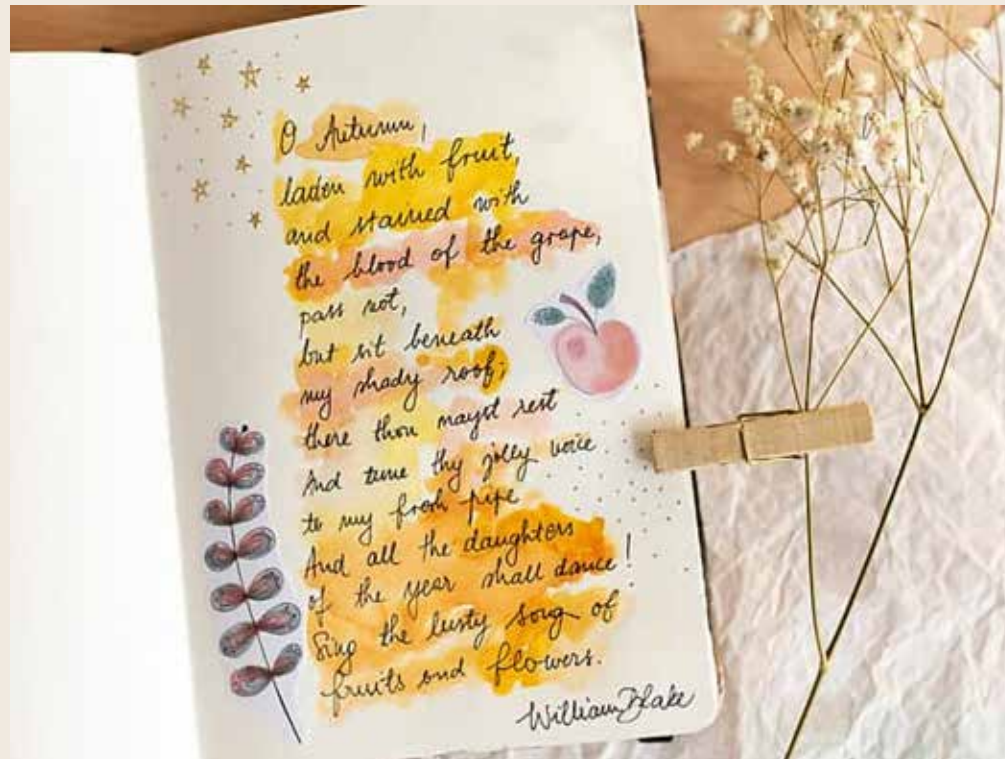 O Autumn,
laden with fruit,
and stained with
the blood of the grape,
pass not,
but sit beneath
my shady roof;
there thou mayst rest
And tune thy jolly voice
to my fresh pipe
And all the daughters
of the year shall dance!
Sing the lusty song of
fruits and flowers.
William Blake